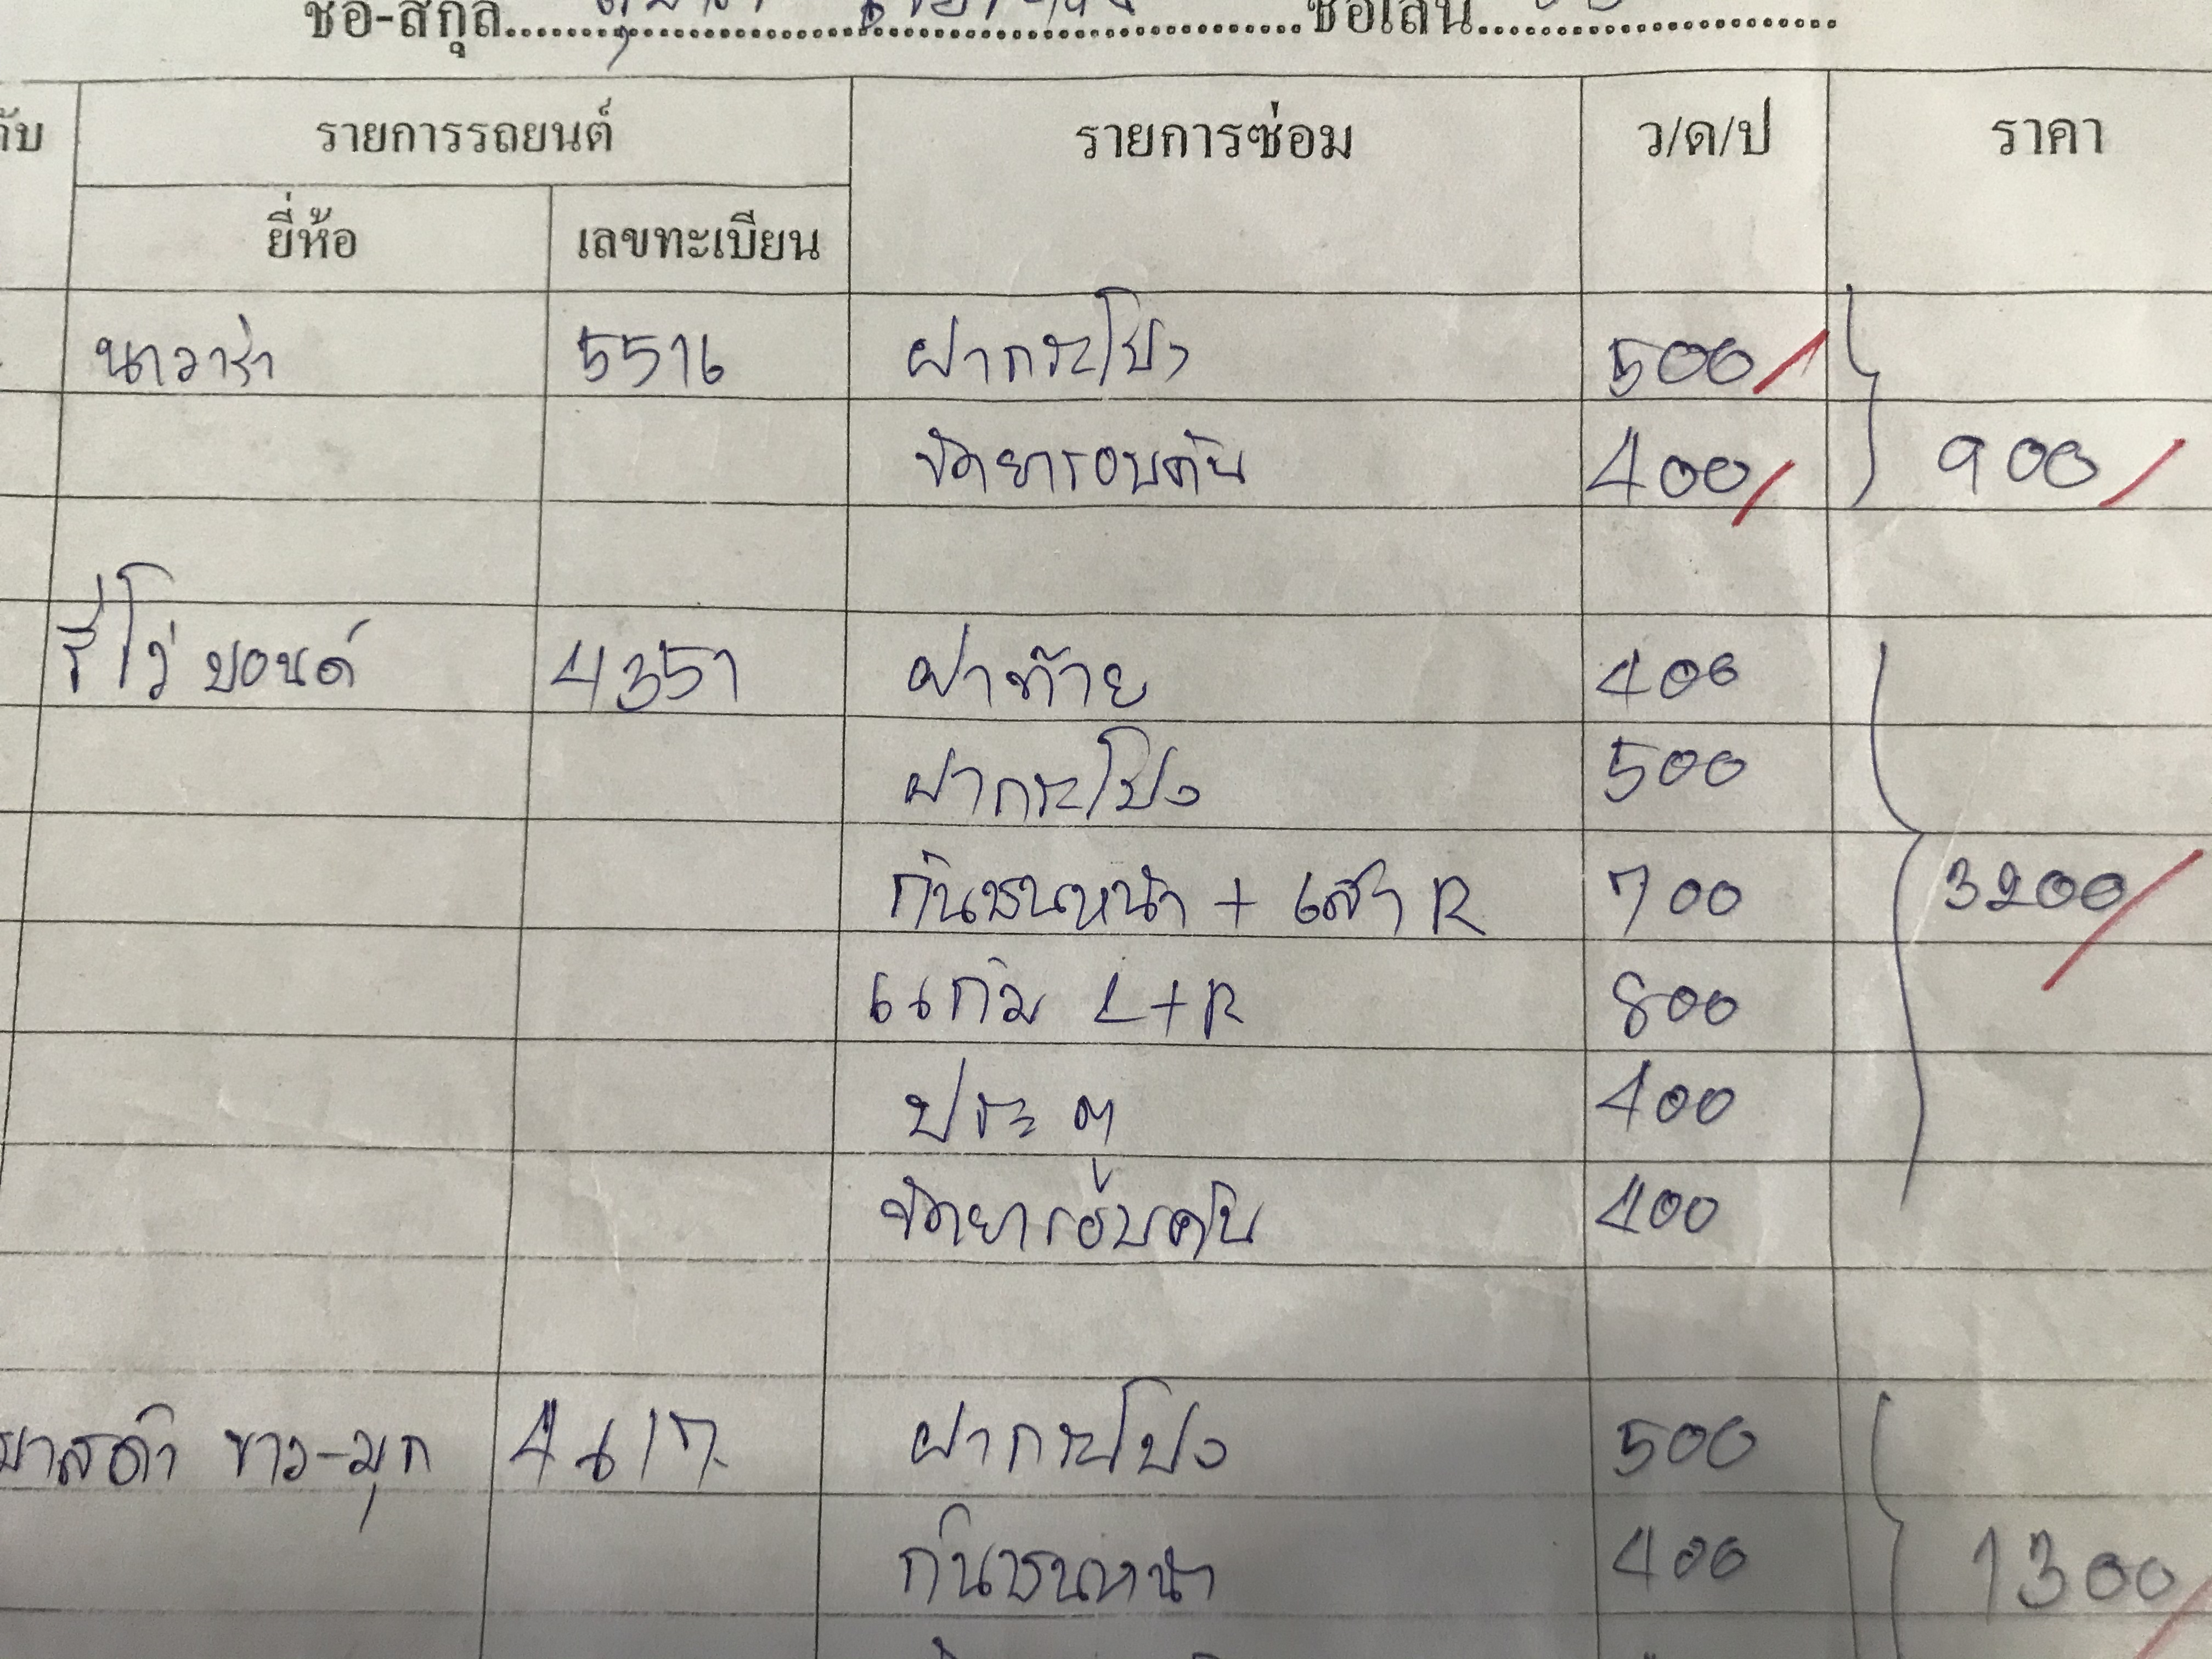 ชื่อ-สกุล ชื่อเล่น
รายการรถยนต์ รายการซ่อม ว/ด/ป ราคา
ยี่ห้อ เลขทะเบียน
นาวาร่า 5516 ฝากระโปรง 500
ขัดยารอบคัน 400 900
รีโว่ บอนด์ 4351 ฝาท้าย 400
ฝากระโปง 500
กันชนหน้า + เสา R 700 3200
แก้ม L+R 800
ประตู 400
ขัดยารอบคัน 400
มาสด้า ขาว-มุก 4617 ฝากระโปง 500
กันชนหน้า 400 1300